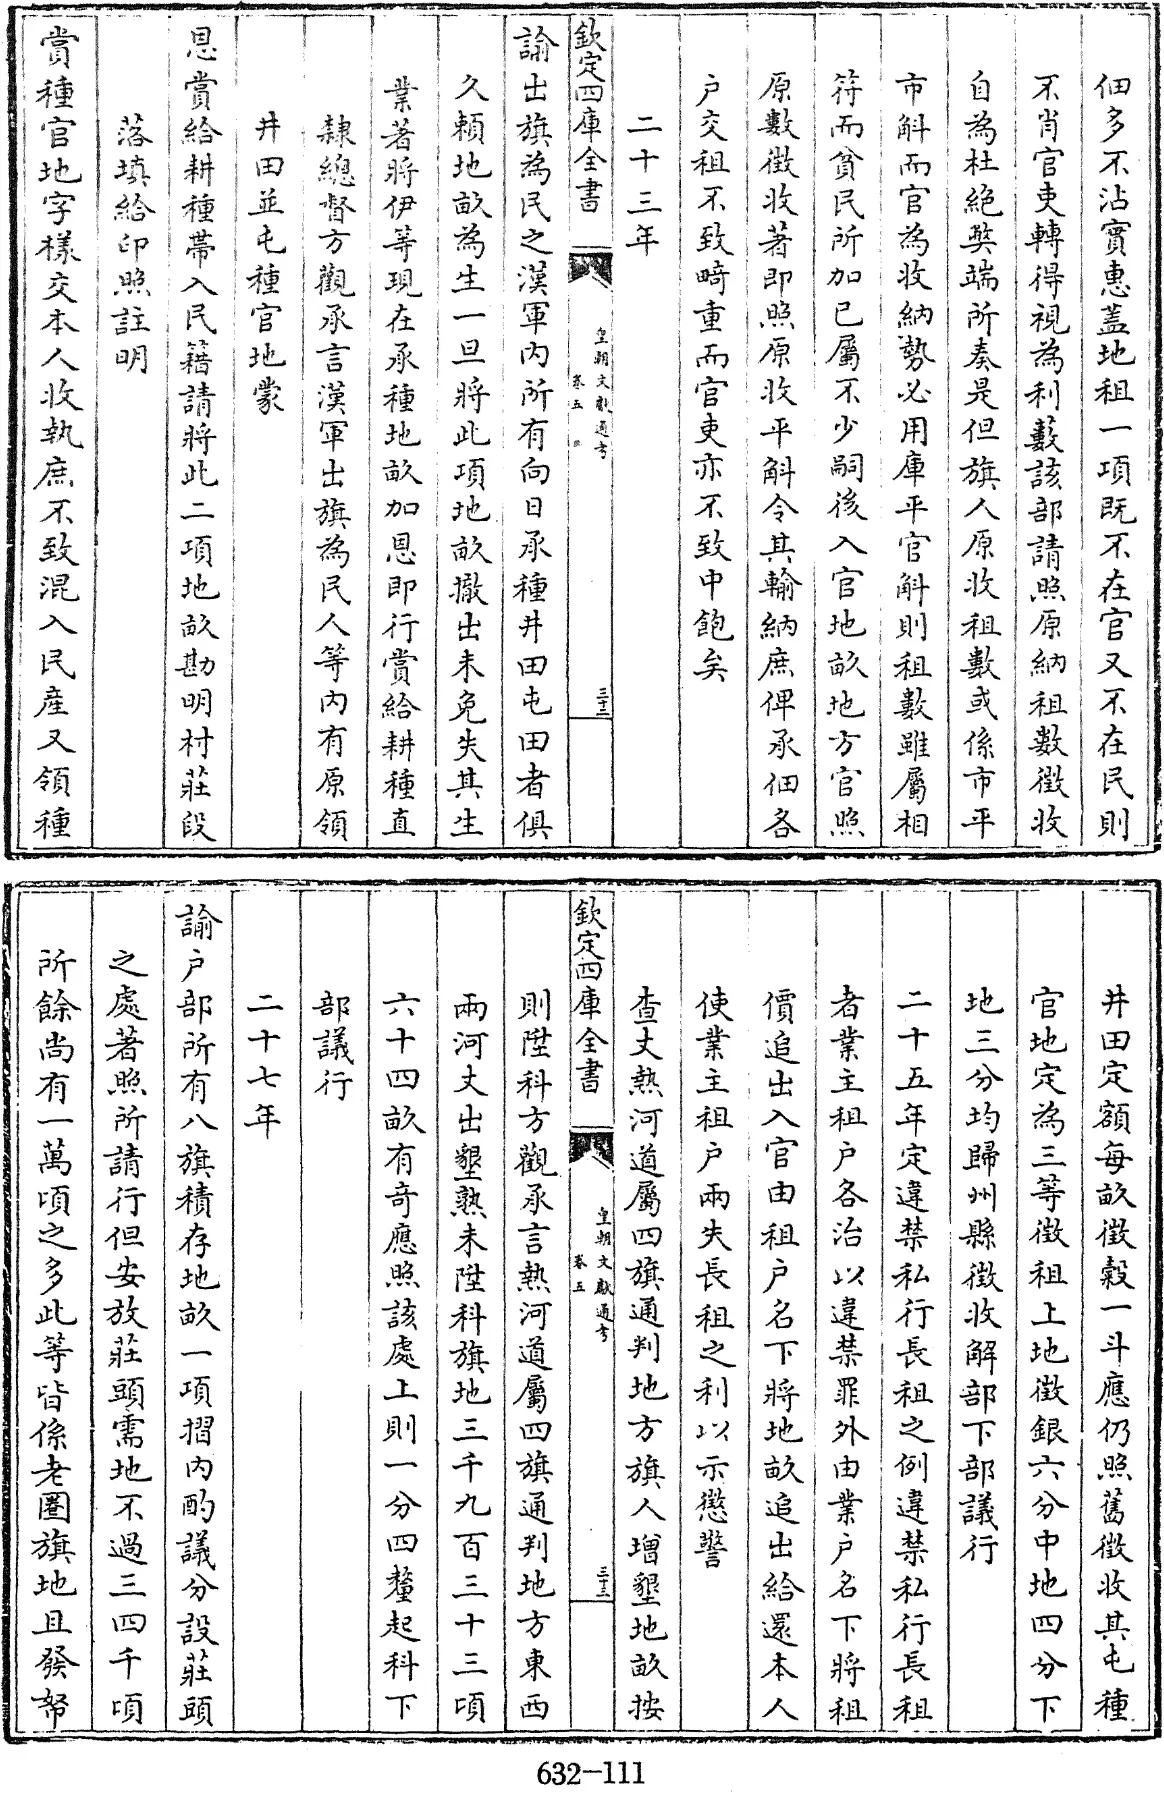 佃多不沾實惠蓋地租一項既不在官又不在民則
不肖官吏轉得視為利藪該部請照原納租數徵收
自為杜絶弊端所奏是但旗人原收租數或係市平
市斛而官為收納勢必用庫平官斛則租數雖屬相
符而貧民所加已屬不少嗣後入官地畝地方官照
原數徵收著即照原收平斛令其輸納庶俾承佃各
户交租不致畸重而官吏亦不致中飽矣
二十三年
欽定四庫全書
皇朝文獻通考
卷五
三十二
諭出旗為民之漢軍内所有向日承種井田屯田者俱
久頼地畝為生一旦將此項地畝撤出未免失其生
業著將伊等現在承種地畝加恩即行賞給耕種直
隸總督方觀承言漢軍出旗為民人等内有原領
井田並屯種官地蒙
恩賞給耕種帶入民籍請將此二項地畝勘明村莊段
落填給印照註明
賞種官地字樣交本人收執庶不致混入民產又領種
井田定額每畝徵穀一斗應仍照舊徵收其屯種
官地定為三等徵租上地徵銀六分中地四分下
地三分均歸州縣徵收解部下部議行
二十五年定違禁私行長租之例違禁私行長租
者業主租户各治以違禁罪外由業户名下將租
價追出入官由租户名下將地畝追出給還本人
使業主租户兩失長租之利以示懲警
查丈熱河道屬四旗通判地方旗人增墾地畝按
欽定四庫全書
皇朝文獻通考
卷五
三十三
則陞科方觀承言熱河道屬四旗通判地方東西
兩河丈出墾熟未陞科旗地三千九百三十三頃
六十四畝有奇應照該處上則一分四釐起科下
部議行
二十七年
諭户部所有八旗積存地畝一項摺内酌議分設莊頭
之處著照所請行但安放莊頭需地不過三四千頃
所餘尚有一萬頃之多此等皆係老圏旗地且發帑
632-111